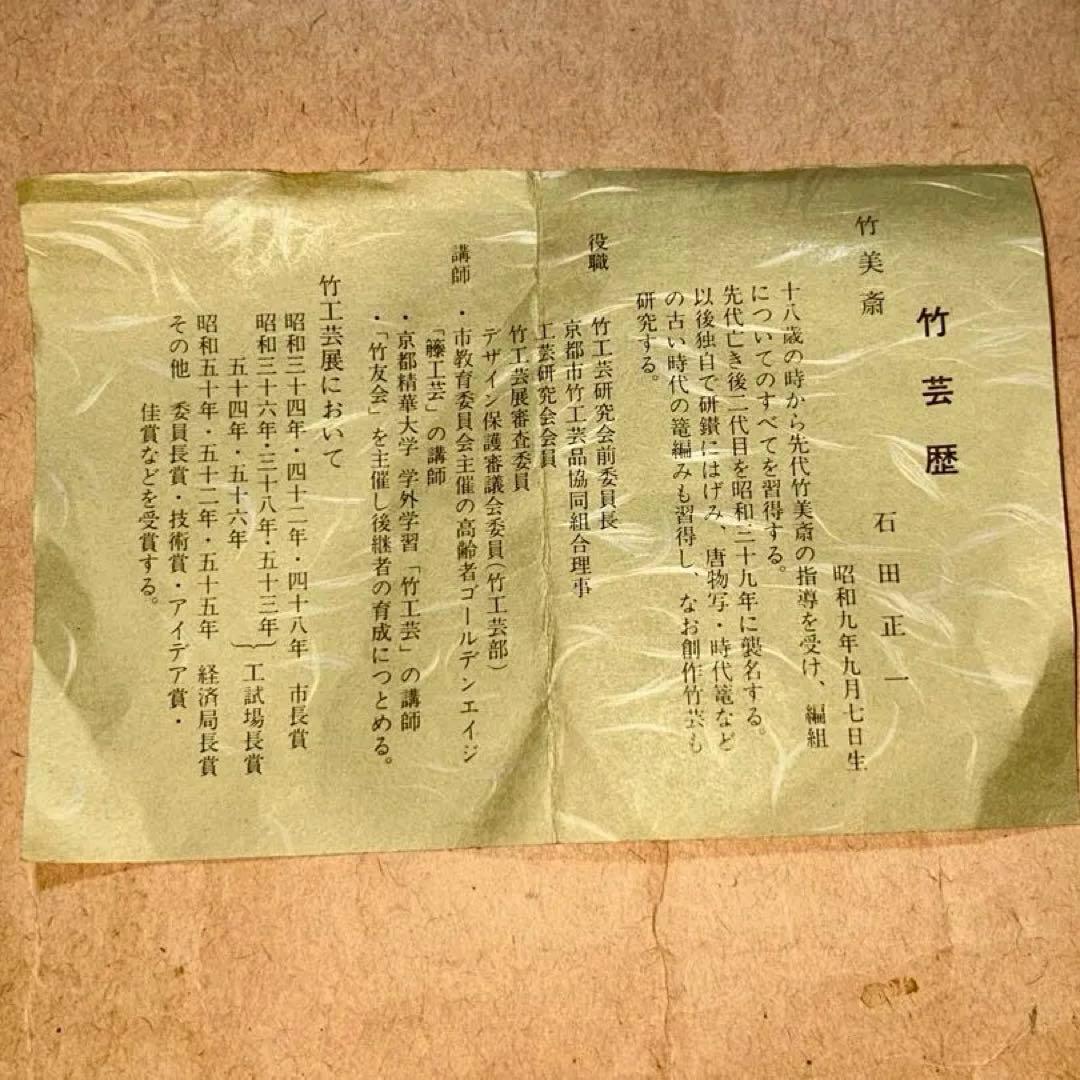 竹芸歴
竹美斎
石田正一
昭和九年九月七日生
十八歳の時から先代竹美斎の指導を受け、編組
についてのすべてを習得する。
先代亡き後二代目を昭和三十九年に襲名する。
以後独自で研鑚にはげみ、唐物写・時代篭など
の古い時代の篭編みも習得し、なお創作竹芸も
研究する。
役職
竹工芸研究会前委員長
京都市竹工芸品協同組合理事
工芸研究会会員
竹工芸展審査委員
デザイン保護審議会委員(竹工芸部)
講師
・市教育委員会主催の高齢者ゴールデンエイジ
「籐工芸」の講師
・京都精華大学 学外学習「竹工芸」の講師
・「竹友会」を主催し後継者の育成につとめる。
竹工芸展において
昭和三十四年・四十二年・四十八年 市長賞
昭和三十六年・三十八年・五十三年
五十四年・五十六年
工試場長賞
昭和五十年・五十二年・五十五年 経済局長賞
その他 委員長賞・技術賞・アイデア賞・
佳賞などを受賞する。